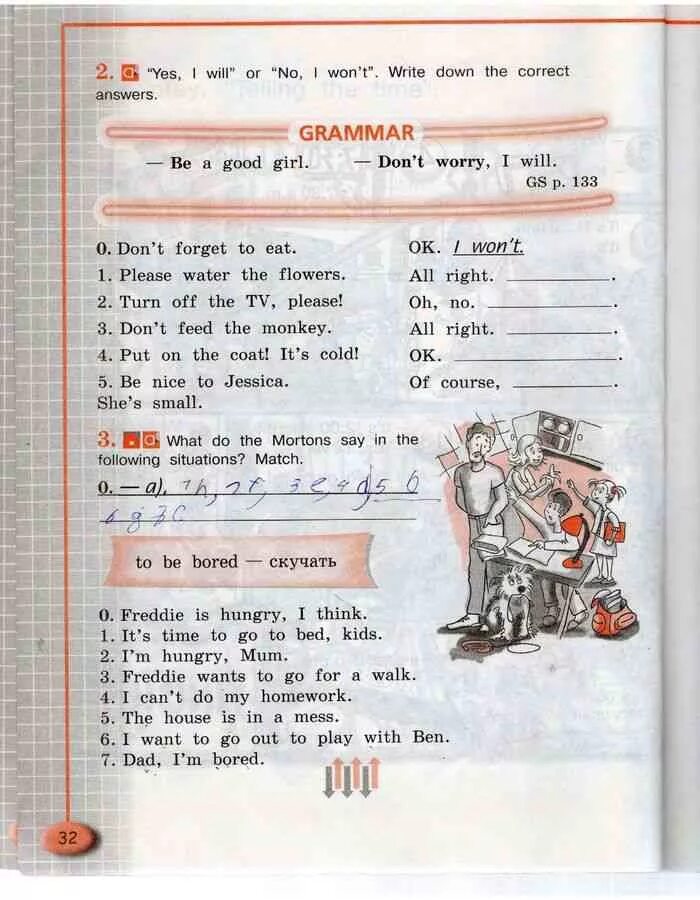 2. a "Yes, I will" or "No, I won't". Write down the correct
answers.
GRAMMAR
— Be a good girl. — Don't worry, I will.
GS p. 133
0. Don't forget to eat. OK. I won't.
1. Please water the flowers. All right. ____________.
2. Turn off the TV, please! Oh, no. ____________.
3. Don't feed the monkey. All right. ____________.
4. Put on the coat! It's cold! OK. ____________.
5. Be nice to Jessica. Of course, ____________.
She's small.
3. a What do the Mortons say in the
following situations? Match.
0. — a), 1h, 2f, 3e, 4d, 5
to be bored — скучать
0. Freddie is hungry, I think.
1. It's time to go to bed, kids.
2. I'm hungry, Mum.
3. Freddie wants to go for a walk.
4. I can't do my homework.
5. The house is in a mess.
6. I want to go out to play with Ben.
7. Dad, I'm bored.
32